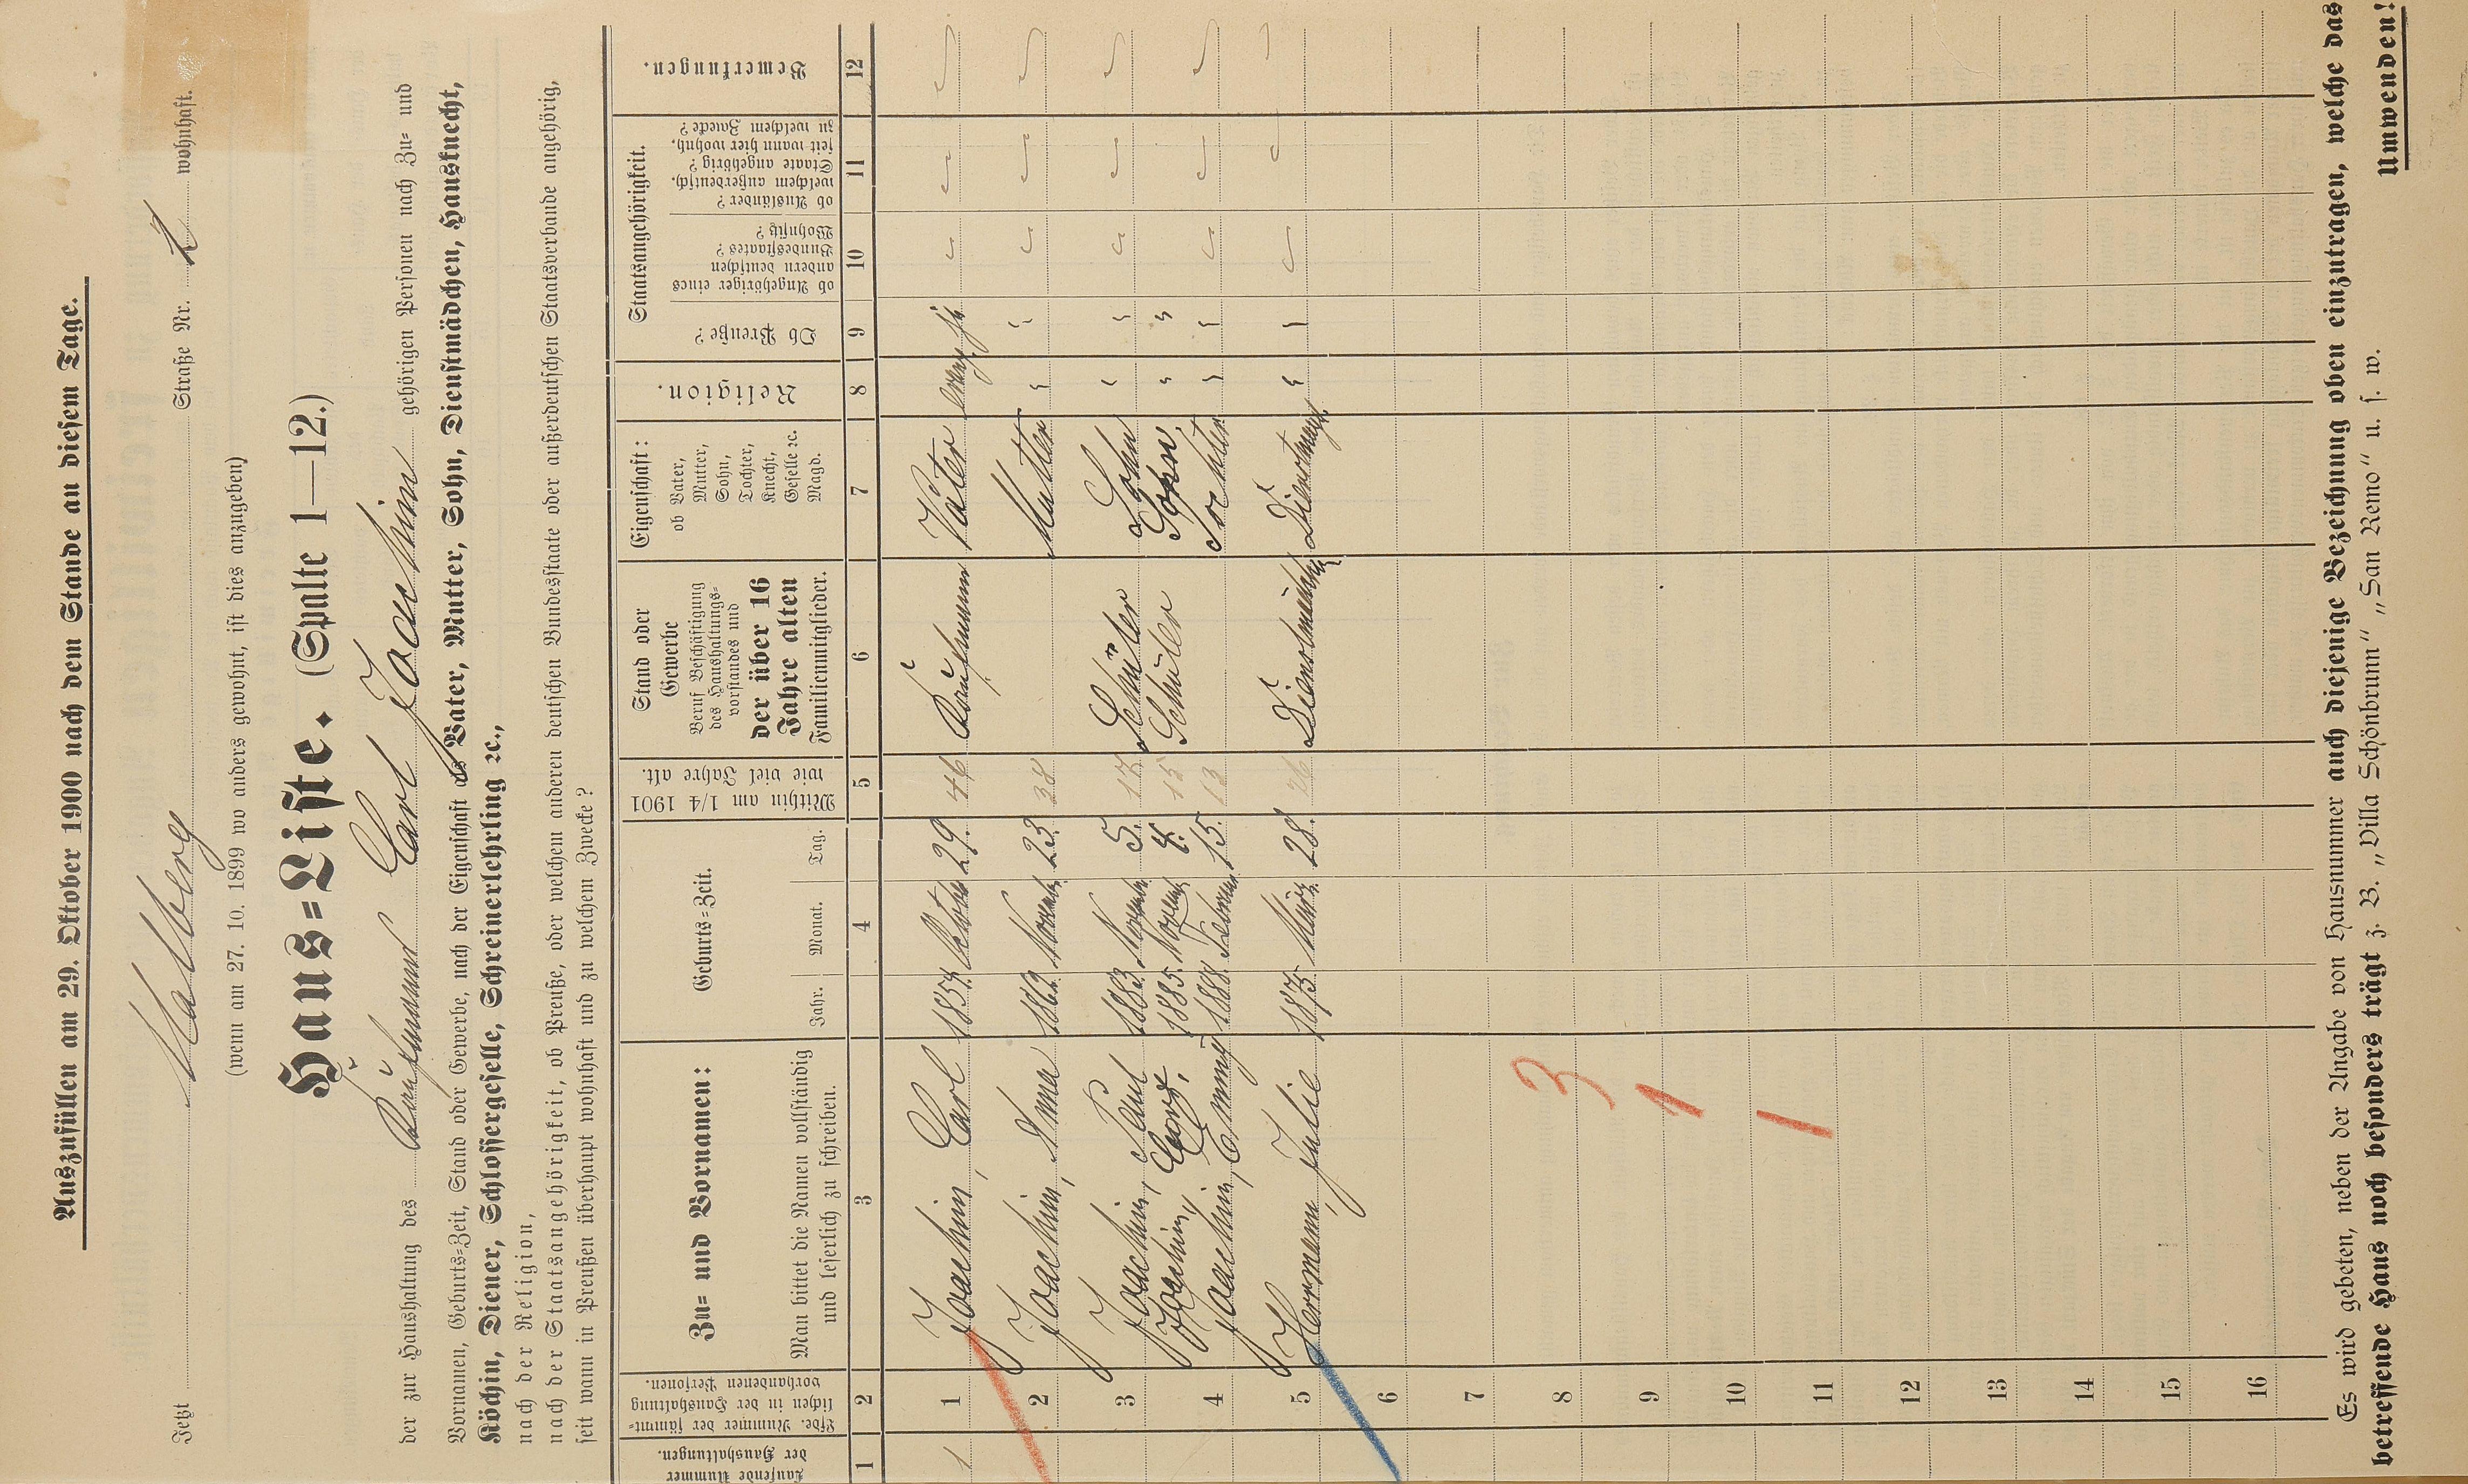 Auszufüllen am 29. Oktober 1900 nach dem Stande an diesem Tage.
Jetzt Malberg Straße Nr. 2 wohnhaft.
(wenn am 27. 10. 1899 wo anders gewohnt, ist dies anzugeben)
Haus=Liste. (Spalte 1—12.)
der zur Haushaltung des Kaufmann Carl Joachim gehörigen Personen nach Zu= und
Vornamen, Geburts=Zeit, Stand oder Gewerbe, nach der Eigenschaft als Vater, Mutter, Sohn, Dienstmädchen, Hausknecht,
Köchin, Diener, Schlossergeselle, Schreinerlehrling ꝛc.,
nach der Religion,
nach der Staatsangehörigkeit, ob Preuße, oder welchem anderen deutschen Bundesstaate oder außerdeutschen Staatsverbande angehörig,
seit wann in Preußen überhaupt wohnhaft und zu welchem Zwecke?
Laufende Nummer der Haushaltungen.
Lfde. Nummer der sämmt=lichen in der Haushaltung vorhandenen Personen.
Zu= und Vornamen:
Man bittet die Namen vollständig
und leserlich zu schreiben.
Geburts=Zeit.
Jahr. Monat. Tag.
Mithin am 1/4 1901 wie viel Jahre alt.
Stand oder
Gewerbe
Beruf Beschäftigung
des Haushaltungs=
vorstandes und
der über 16
Jahre alten
Familienmitglieder.
Eigenschaft:
ob Vater,
Mutter,
Sohn,
Tochter,
Knecht,
Geselle ꝛc.
Magd.
Religion.
Staatsangehörigkeit.
Ob Preuße?
ob Angehöriger eines
andern deutschen
Bundesstaates?
Wohnsitz?
ob Ausländer?
welchem außerdeutsch.
Staate angehörig?
seit wann hier wohnh.
zu welchem Zwecke?
Bemerkungen.
1 2 3 4 5 6 7 8 9 10 11 12
1 1 Joachim, Carl 1854. October 29. 46 Kaufmann Vater evang. ja
2 Joachim, Anna 1862. Novemb. 23. 38 Mutter " "
3 Joachim, Paul 1883. Novemb. 5. 17 Schüler Sohn " "
Joachim, 1885. Novemb. 4. 15 Schüler Sohn " "
4 Joachim, Emmy 1888. 15. 13 Tochter " "
5 Herrmann Julie 1875. März 28. 26 Dienstmädchen Dienstmagd " "
6
7
8 3
9 1
10
11 1
12
13
14
15
16
Es wird gebeten, neben der Angabe von Hausnummer auch diejenige Bezeichnung oben einzutragen, welche das
betreffende Haus noch besonders trägt z. B. „Villa Schönbrunn" „San Remo" u. s. w.
Umwenden!